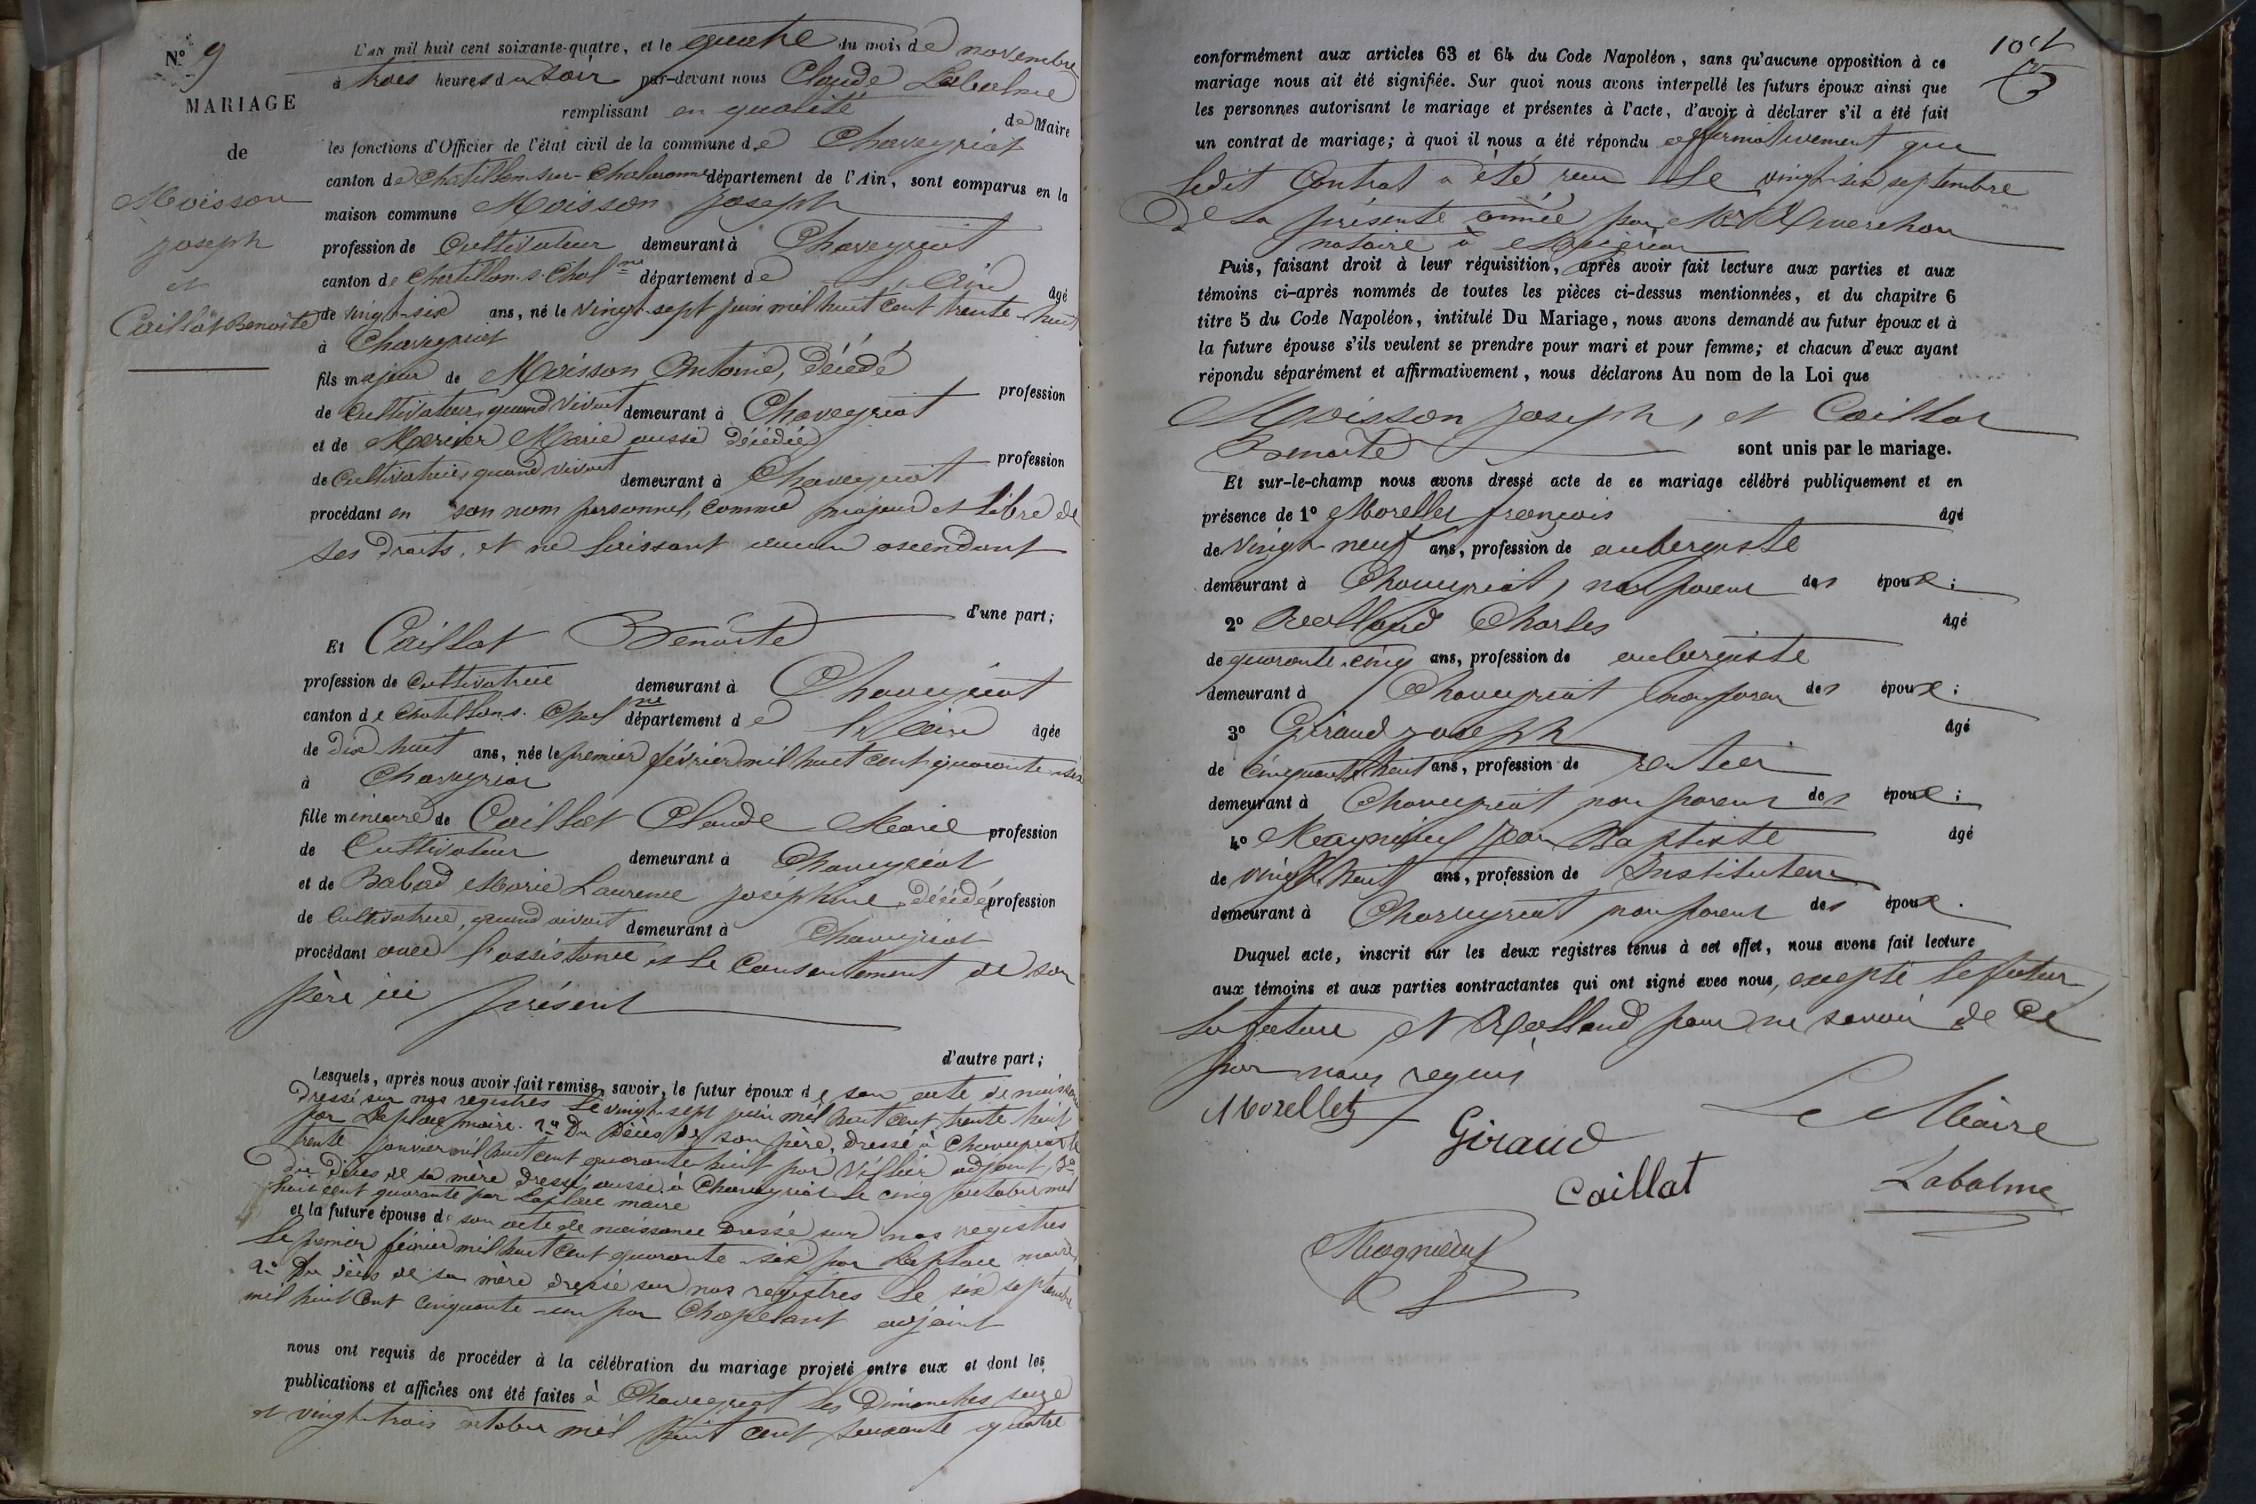 N° 9
MARIAGE
de
Moisson
joseph
et
Caillat Benoite
L'an mil huit cent soixante-quatre, et le quatre du mois de novembre
à trois heures du soir par-devant nous Claude Labalme
remplissant en qualité de Maire
les fonctions d'Officier de l'état civil de la commune de Chaveyriat
canton de Chatillon-sur-Chalaronne département de l'Ain, sont comparus en la
maison commune Moisson joseph
profession de Cultivateur demeurant à Chaveyriat
canton de Chatillon s. Chalne département de L'Ain âgé
de vingt-six ans, né le vingt-sept juin mil huit cent trente-huit
à Chaveyriat
fils majeur de Moisson Antoine, décédé profession
de Cultivateur, quand vivait demeurant à Chaveyriat
et de Marie aussi décédée profession
de Cultivatrice, quand vivait demeurant à Chaveyriat
procédant en son nom personnel, comme majeur et libre de
ses droits, et ne laissant aucun ascendant
d'une part;
Et Caillat Benoite
profession de Cultivatrice demeurant à Chaveyriat
canton de Chatillon s. Chalne département de L'Ain âgée
de dix huit ans, née le premier février mil huit cent quarante-six
à Chaveyriat
fille mineure de Caillat Claude Marie profession
de Cultivateur demeurant à Chaveyriat
et de Babad Marie Laurence joséphine, décédé profession
de Cultivatrice, quand vivait demeurant à Chaveyriat
procédant avec l'assistance et le Consentement de son
père ici présent
d'autre part;
Lesquels, après nous avoir fait remise, savoir, le futur époux de son acte de naissance
dressé sur nos registres le vingt-sept juin mil huit cent trente huit
par Laplace maire. 2° Du Décès de son père, dressé à Chaveyriat le
trente janvier mil huit cent quarante huit par adjoint, 3°
du décès de sa mère dressé aussi à Chaveyriat le cinq octobre mil
huit cent quarante par Laplace maire
et la future épouse de son acte de naissance dressé sur nos registres
le premier février mil huit cent quarante-six par Laplace maire,
2° Du décès de sa mère dressé sur nos registres le six septembre
mil huit Cent cinquante-un par Chapelant adjoint
nous ont requis de procéder à la célébration du mariage projeté entre eux et dont les
publications et affiches ont été faites à Chaveyriat les Dimanches seize
et vingt-trois octobre mil huit cent soixante quatre
conformément aux articles 63 et 64 du Code Napoléon, sans qu'aucune opposition à ce
mariage nous ait été signifiée. Sur quoi nous avons interpellé les futurs époux ainsi que
les personnes autorisant le mariage et présentes à l'acte, d'avoir à déclarer s'il a été fait
un contrat de mariage; à quoi il nous a été répondu affirmativement que
ledit Contrat a été reçu Le vingt-six septembre
de la présente année par Me
notaire à
Puis, faisant droit à leur réquisition, après avoir fait lecture aux parties et aux
témoins ci-après nommés de toutes les pièces ci-dessus mentionnées, et du chapitre 6
titre 5 du Code Napoléon, intitulé Du Mariage, nous avons demandé au futur époux et à
la future épouse s'ils veulent se prendre pour mari et pour femme; et chacun d'eux ayant
répondu séparément et affirmativement, nous déclarons Au nom de la Loi que
Moisson joseph, et Caillat
Benoite sont unis par le mariage.
Et sur-le-champ nous avons dressé acte de ce mariage célébré publiquement et en
présence de 1° Morellet françois âgé
de vingt neuf ans, profession de aubergiste
demeurant à Chaveyriat, non parent des époux;
2° Rolland Charles âgé
de quarante-cinq ans, profession de aubergiste
demeurant à Chaveyriat non parent des époux;
3° Giraud joseph âgé
de cinquante huit ans, profession de rentier
demeurant à Chaveyriat non parent des époux;
4° Jean Baptiste âgé
de vingt huit ans, profession de Instituteur
demeurant à Chaveyriat non parent des époux.
Duquel acte, inscrit sur les deux registres tenus à cet effet, nous avons fait lecture
aux témoins et aux parties contractantes qui ont signé avec nous, excepté le futur,
la future et Rolland pour ne savoir de ce
par nous requis
Morellet
Giraud
Le Maire
Caillat
Labalme